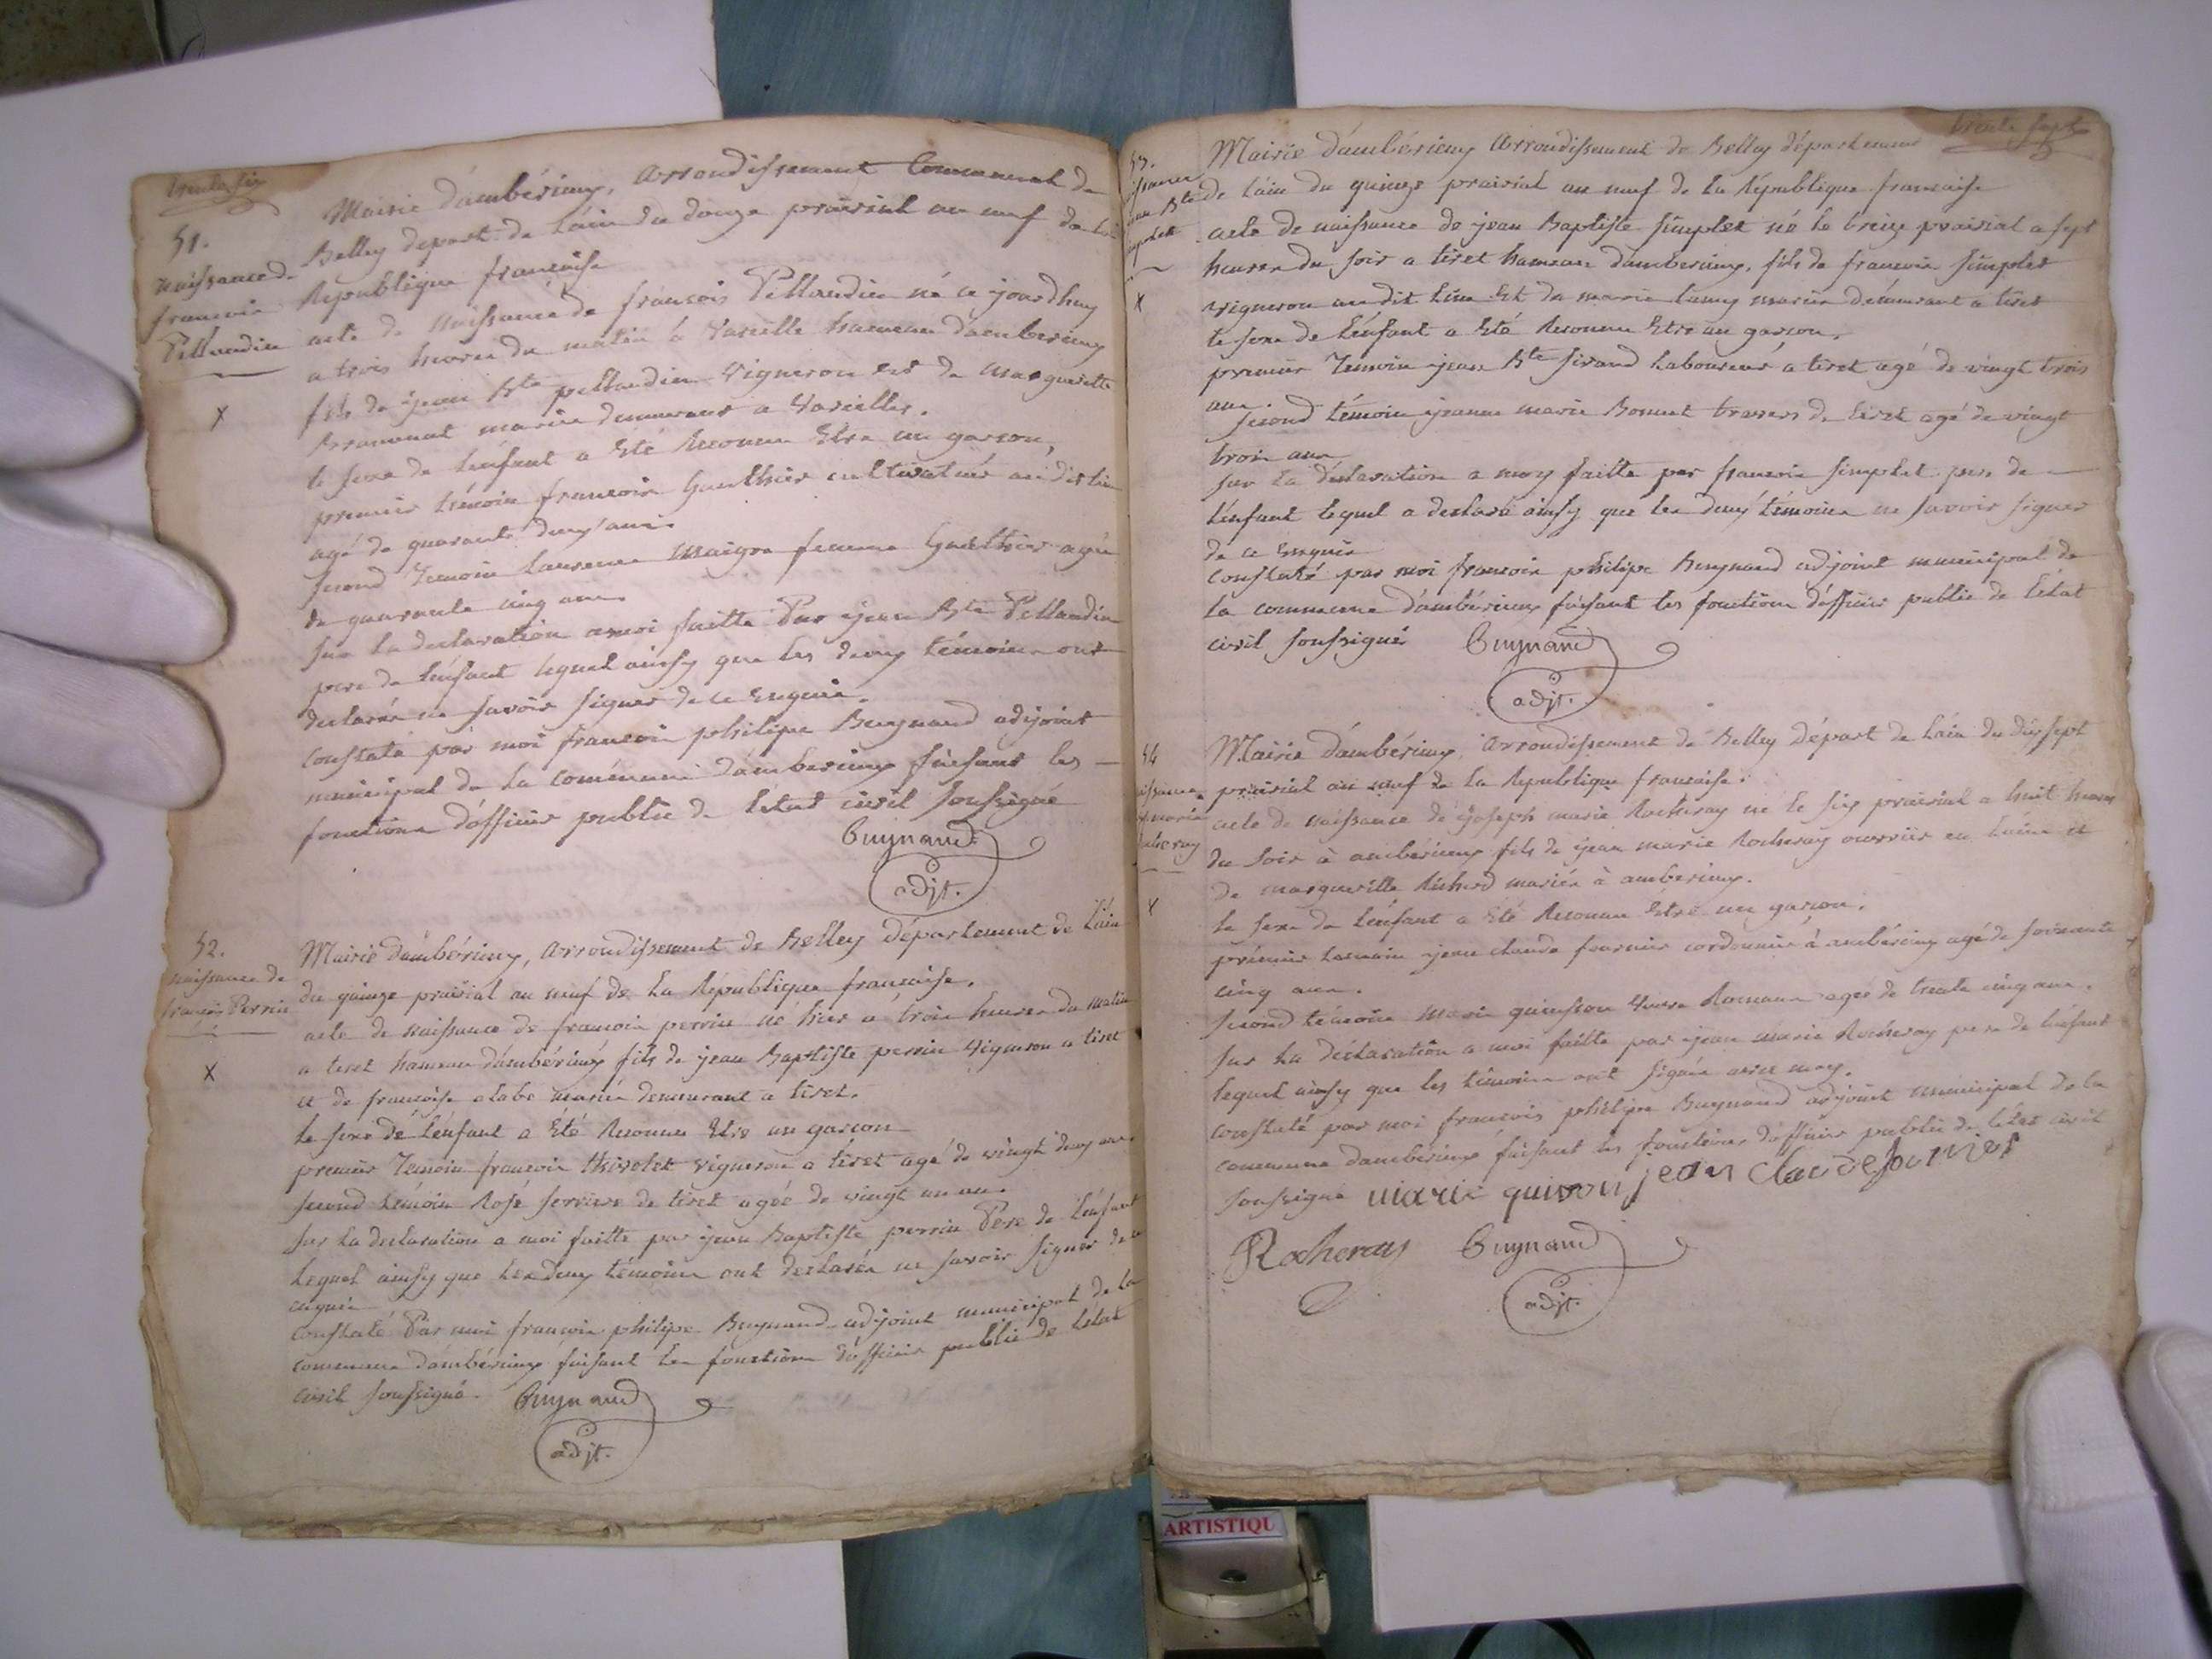 trente six
51.
naissance de
francois
Pellaudin
X
Mairie d'ambérieux, arrondissement Communal de
Belley depart. de l'ain du douze prairial an neuf de la
République françoise
acte de naissance de francois Pellaudin né ce jourdhuy
a trois heures du matin à Vareille hameau d'amberieux
fils de jean Bte pellaudin Vigneron et de Marguerite
mariés demeurant a Vareilles.
le sexe de l'enfant a Eté Reconnu Etre un garcon,
premier témoin francois Gauthier cultivateur au dit lieu
agé de quarante deux ans.
second Temoin Laurence Maigre femme Gauthier agée
de quarante cinq ans
sur la declaration a moi faitte Par jean Bte Pellaudin
pere de l'enfant lequel ainsy que les deux témoins ont
declarés ne savoir signer de ce Enquis.
Constaté par moi francois philipe Buynand adjoint
municipal de la commune d'amberieux faisant les
fonctions d'officier public de l'état civil soussigné
Buynand
adjt.
52.
naissance de
francois Perrin
X
Mairie d'ambérieux, arrondissement de Belley département de l'ain
du quinze prairial an neuf de la République francaise.
acte de naissance de francois perrin né hier a trois heures du matin
a tiret hameau d'ambérieux fils de jean Baptiste perrin Vigneron a tiret
et de francoise mariés demeurant a tiret.
le sexe de l'enfant a Eté Reconnu Etre un garcon
premier Temoin francois Vigneron a tiret agé de vingt deux ans.
second témoin Rose de tiret agée de vingt un ans.
sur la declaration a moi faitte par jean Baptiste perrin Pere de l'enfant
lequel ainsy que les deux témoins ont declarés ne savoir signer de ce
enquis
Constaté Par moi francois philipe Buynand adjoint municipal de la
commune d'ambérieux faisant les fonctions d'officier public de l'état
civil soussigné. Buynand
adjt.
trente sept
53.
X
Mairie d'ambérieux arrondissement de Belley département
de l'ain du quinze prairial an neuf de la République francaise
acte de naissance de jean Baptiste simplet né le treize prairial a sept
heures du soir a tiret hameau d'amberieux, fils de francois simplet
vigneron au dit lieu Et de marie mariés demeurant a tiret
le sexe de l'enfant a Eté Reconnu Etre un garcon,
premier Temoin jean Bte sirand laboureur a tiret agé de vingt trois
ans.
second témoin jeanne marie Bonnet de tiret agé de vingt
trois ans
sur la déclaration a moy faitte par francois simplet pere de
l'enfant lequel a declaré ainsy que les deux témoins ne savoir signer
de ce Enquis
Constaté par moi francois philipe Buynand adjoint municipal de
la commune d'ambérieux faisant les fonctions d'officier public de l'état
civil soussigné Buynand
adjt.
54
X
Mairie d'ambérieux, arrondissement de Belley départ de l'ain du dix sept
prairial an neuf de la République francaise.
acte de naissance de joseph marie Rocheray né le six prairial a huit heures
du soir à ambérieux fils de jean marie Rocheray ouvrier en laine et
de marguerite Richerd mariés à amberieux.
le sexe de l'enfant a Eté Reconnu Etre un garcon.
prémier temoin jean claude fournier cordonnier à ambérieux agé de soixante
cinq ans.
second témoin Marie quinson agée de trente cinq ans.
sur la déclaration a moi faitte par jean marie Rocheray pere de l'enfant
lequel ainsy que les témoins ont signés avec moy.
Constaté par moi francois philipe Buynand adjoint municipal de la
commune d'ambérieux faisant les fonctions d'officier public de l'état civil
soussigné marie quinson jean claude fournier
Rocheray Buynand
adjt.
ARTISTIQU